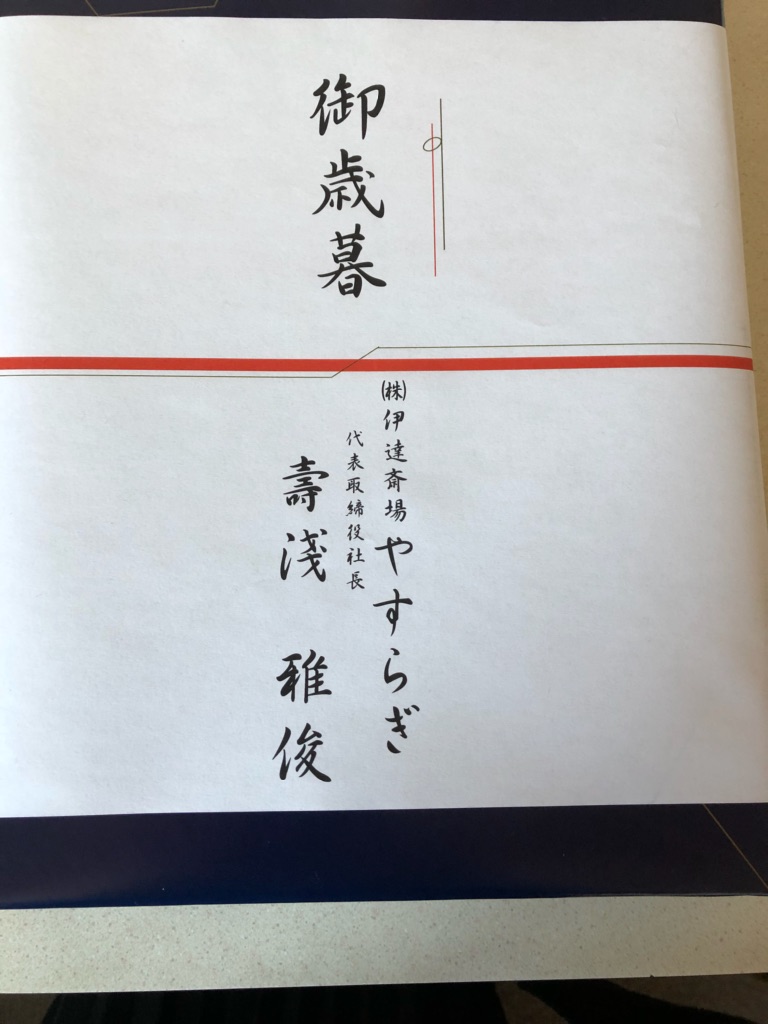 御歳暮
㈱伊達斎場やすらぎ
代表取締役社長
壽淺 雅俊